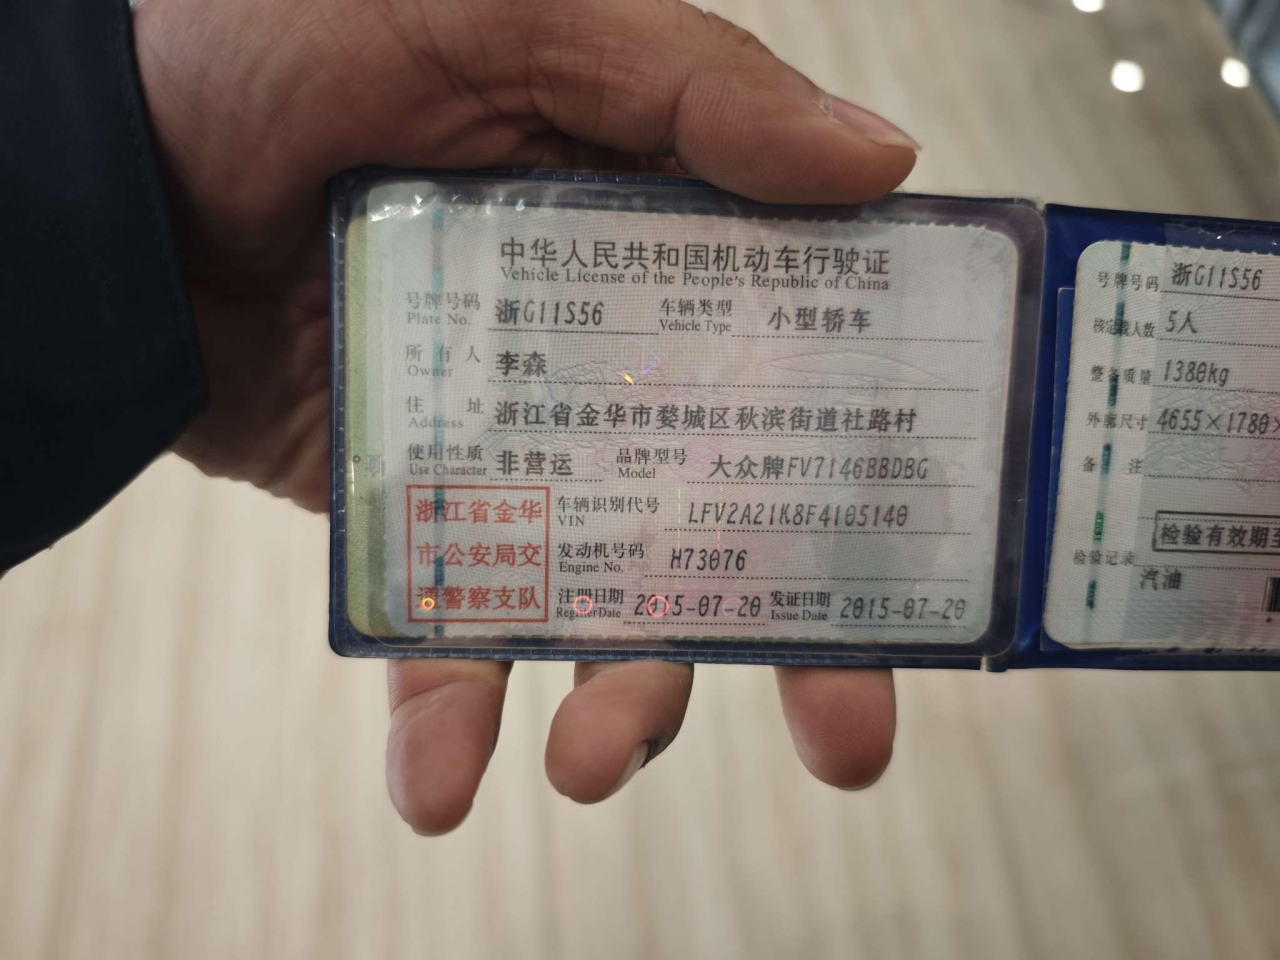 中华人民共和国机动车行驶证
Vehicle License of the People's Republic of China
号牌号码 浙G11S56 车辆类型 小型轿车
Plate No. Vehicle Type
所有人 李森
Owner
住址 浙江省金华市婺城区秋滨街道社路村
Address
使用性质 非营运 品牌型号 大众牌FV7146BBDBG
Use Character Model
浙江省金华
市公安局交
通警察支队
车辆识别代号 LFV2A21K8F4105140
VIN
发动机号码 H73076
Engine No.
注册日期 2015-07-20 发证日期 2015-07-20
Register Date Issue Date
号牌号码 浙G11S56
核定载人数 5人
整备质量 1380kg
外廓尺寸 4655×1780×
备注
检验有效期至
检验记录
汽油